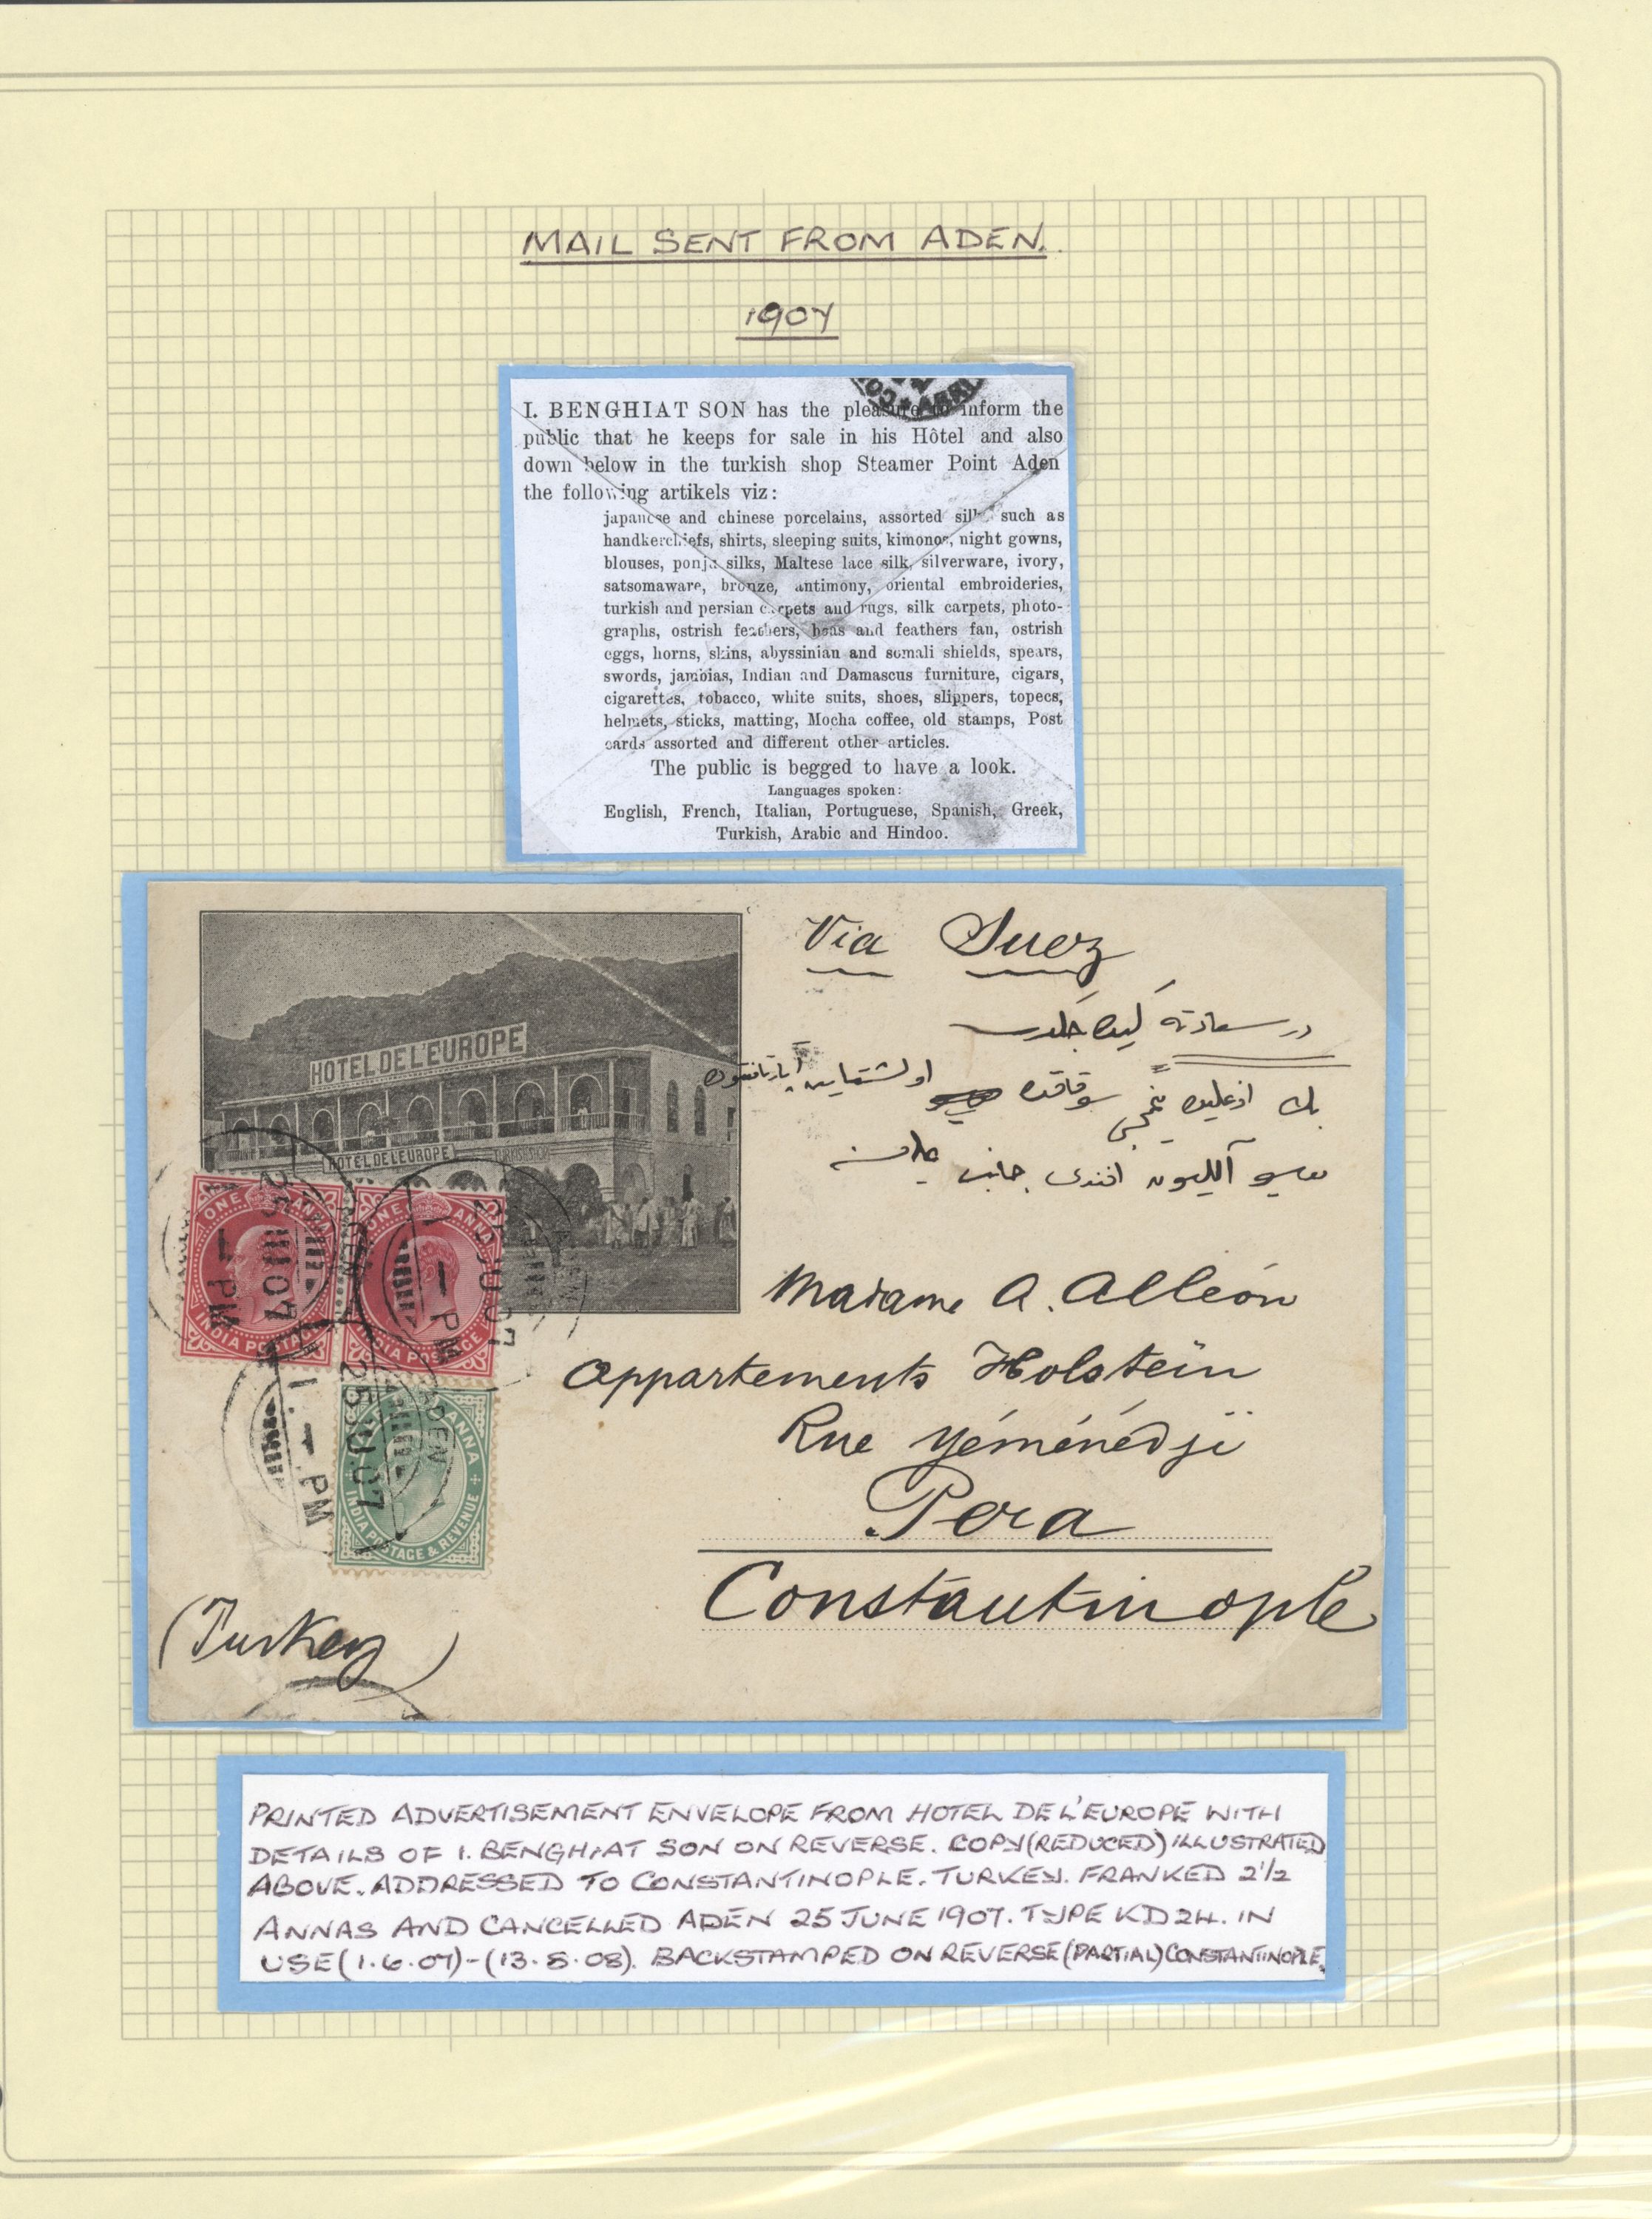 MAIL SENT FROM ADEN.
1907
I. BENGHIAT SON has the pleasure to inform the
public that he keeps for sale in his Hôtel and also
down below in the turkish shop Steamer Point Aden
the following artikels viz:
japanese and chinese porcelains, assorted silks such as
handkerchiefs, shirts, sleeping suits, kimonos, night gowns,
blouses, ponju silks, Maltese lace silk, silverware, ivory,
satsomaware, bronze, antimony, oriental embroideries,
turkish and persian carpets and rugs, silk carpets, photo-
graphs, ostrish feathers, boas and feathers fan, ostrish
eggs, horns, skins, abyssinian and somali shields, spears,
swords, jambias, Indian and Damascus furniture, cigars,
cigarettes, tobacco, white suits, shoes, slippers, topees,
helmets, sticks, matting, Mocha coffee, old stamps, Post
cards assorted and different other articles.
The public is begged to have a look.
Languages spoken:
English, French, Italian, Portuguese, Spanish, Greek,
Turkish, Arabic and Hindoo.
HOTEL DE L'EUROPE
HOTEL DE L'EUROPE TURKISH SHOP
Via Suez
در سعادته
بك اوغلنده سوقاقنده
موسيو آلليون افندى
Madame A. Alléon
Appartements Holstein
Rue Yéménédji
Pera
Constantinople
(Turkey)
ONE ANNA
INDIA POSTAGE
ONE ANNA
INDIA POSTAGE
ANNA
INDIA POSTAGE & REVENUE
ADEN
25 JU 07
1 - PM
ADEN
25 JU 07
1 - PM
ADEN
25 JU 07
1 - PM
PRINTED ADVERTISEMENT ENVELOPE FROM HOTEL DE L'EUROPE WITH
DETAILS OF I. BENGHIAT SON ON REVERSE. COPY (REDUCED) ILLUSTRATED
ABOVE. ADDRESSED TO CONSTANTINOPLE. TURKEY. FRANKED 2 1/2
ANNAS AND CANCELLED ADEN 25 JUNE 1907. TYPE KD 24. IN
USE (1.6.07)-(13.8.08). BACKSTAMPED ON REVERSE (PARTIAL) CONSTANTINOPLE.